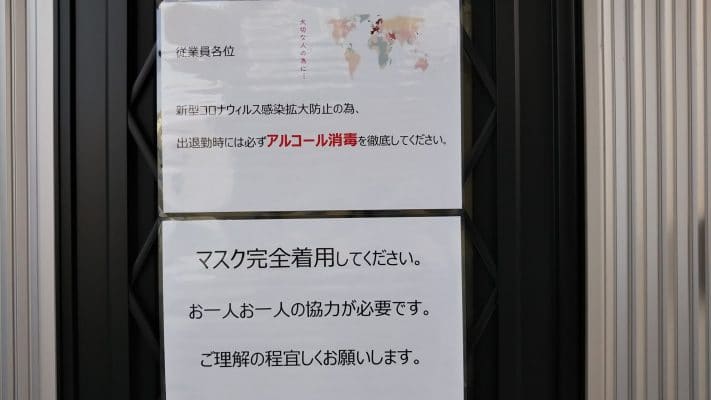 大切な人の為に…
従業員各位
新型コロナウィルス感染拡大防止の為、
出退勤時には必ずアルコール消毒を徹底してください。
マスク完全着用してください。
お一人お一人の協力が必要です。
ご理解の程宜しくお願いします。